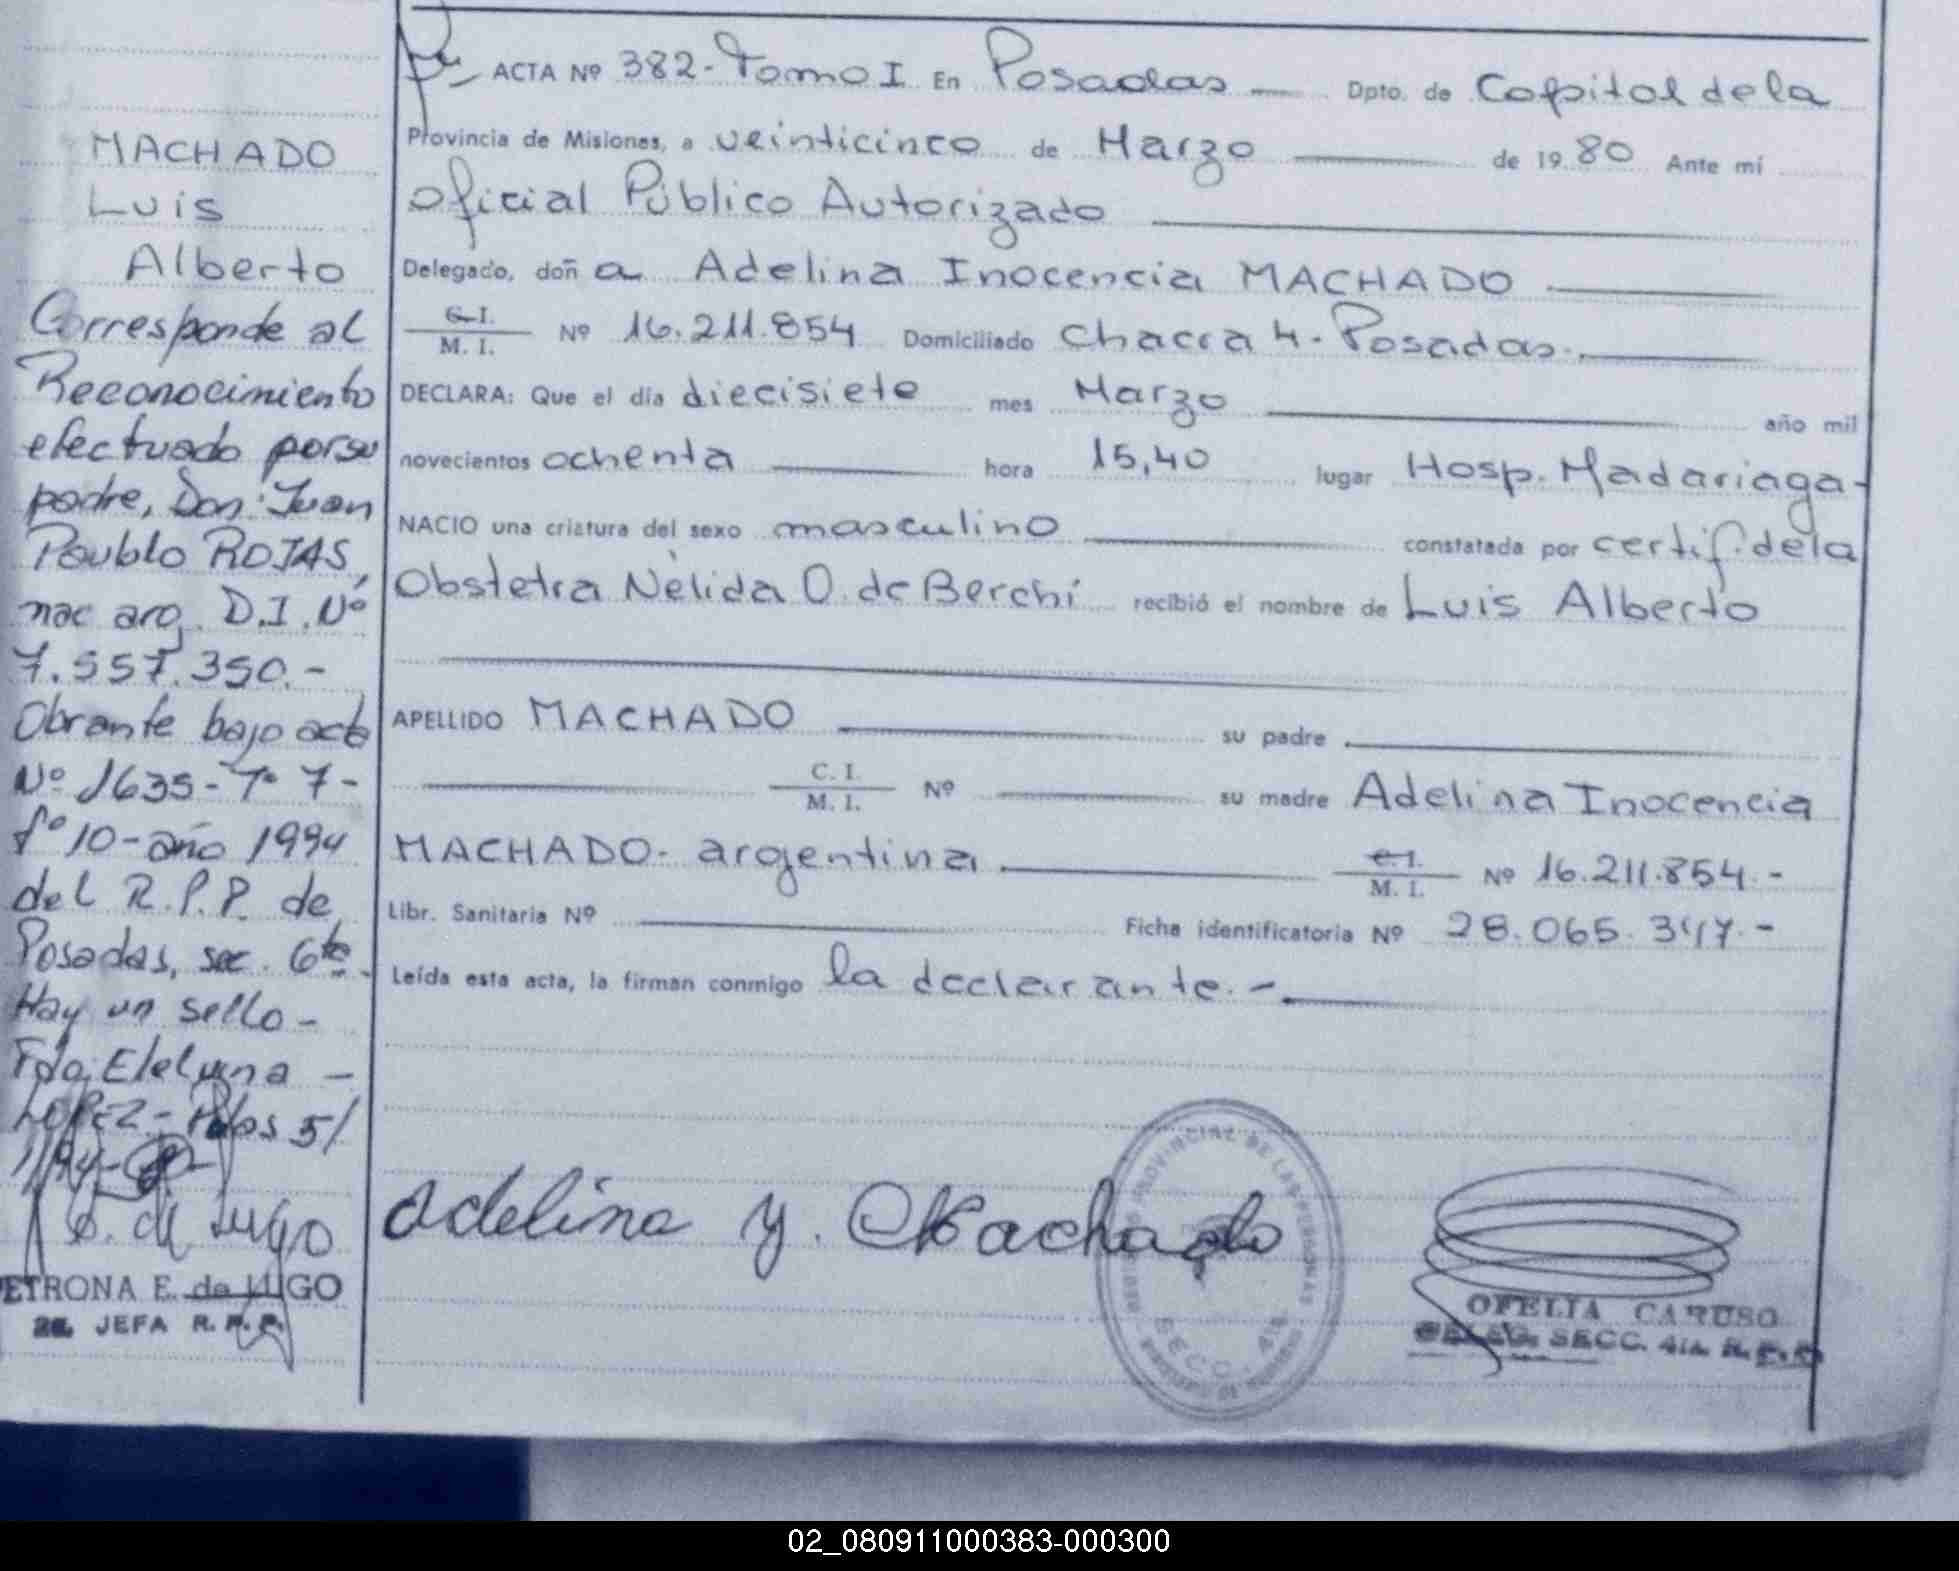 MACHADO
Luis
Alberto
Corresponde al
Reconocimiento
efectuado por su
padre, Don: Juan
Paublo ROJAS,
nac arg. D.I. Nº
7.557.350.-
Obrante bajo acta
Nº 1635-Tº 7-
fº 10-año 1994
del R.P.P. de
Posadas, sec. 6ta.
Hay un sello-
Fdo.
LOPEZ- Pdas 5/
S. de Lugo
PETRONA E. de LUGO
JEFA R. P. P.
ACTA Nº 382- Tomo I En Posadas Dpto. de Capital de la
Provincia de Misiones, a veinticinco de Marzo de 19 80 Ante mí
Oficial Público Autorizado
Delegado, doñ a Adelina Inocencia MACHADO
C.I.
M. I. Nº 16.211.854 Domiciliado Chacra 4.- Posadas.
DECLARA: Que el día diecisiete mes Marzo año mil
novecientos ochenta hora 15,40 lugar Hosp. Madariaga-
NACIO una criatura del sexo masculino constatada por certif. de la
Obstetra Nèlida O. de Berchi recibió el nombre de Luis Alberto
APELLIDO MACHADO su padre
C. I.
M. I. Nº su madre Adelina Inocencia
MACHADO- argentina C.I.
M. I. Nº 16.211.854.-
Libr. Sanitaria Nº Ficha identificatoria Nº 28.065.347.-
Leída esta acta, la firman conmigo la declarante.-
Adelina Y. Machado
REGISTRO PROVINCIAL DE LAS PERSONAS
SECC. 4ta.
OFELIA CARUSO
DELEG. SECC. 4ta. R.P.P.
02_080911000383-000300